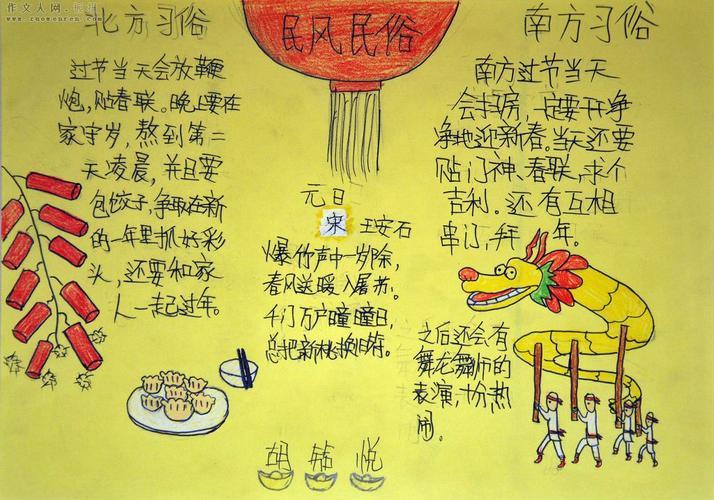 作文人网
北方习俗
过节当天会放鞭
炮,贴春联。晚上要在
家守岁,熬到第二
天凌晨,并且要
包饺子,争取在新
的一年里抓好彩
头,还要和家
人一起过年。
民风民俗
元日
宋 王安石
爆竹声中一岁除,
春风送暖入屠苏。
千门万户瞳瞳日,
总把新桃换旧符。
南方习俗
南方过节当天
会扫房,一定要干净
净地迎新春。当天还要
贴门神、春联,求个
吉利。还有互相
串门,拜年。
之后还会有
舞龙舞师的
表演,十分热
闹。
胡 悦